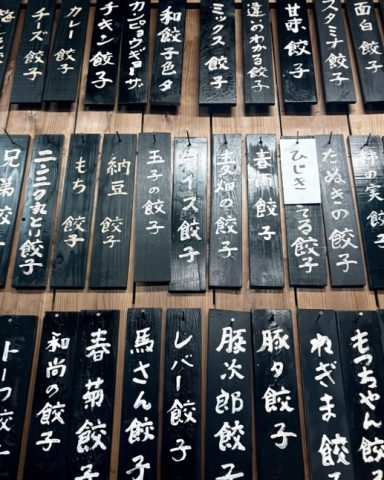 面白餃子
スタミナ餃子
甘味餃子
違いのわかる餃子
ミックス餃子
和餃子色々
カンピョウギョーザ
チキン餃子
カレー餃子
チーズ餃子
の実餃子
たぬきの餃子
ひじき
てる餃子
春雨餃子
麦畑の餃子
イズ餃子
玉子の餃子
納豆餃子
もち餃子
兄弟餃子
もっちゃん餃子
ねぎま餃子
豚タ餃子
豚次郎餃子
レバー餃子
馬さん餃子
春菊餃子
和尚の餃子
トーフ餃子